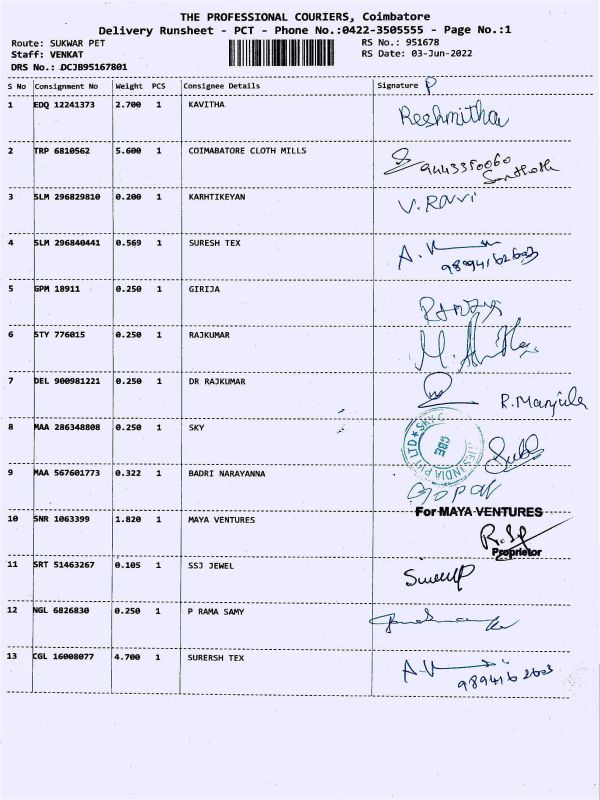 THE PROFESSIONAL COURIERS, Coimbatore
Delivery Runsheet - PCT - Phone No.:0422-3505555 - Page No.:1
Route: SUKWAR PET RS No.: 951678
Staff: VENKAT RS Date: 03-Jun-2022
DRS No.: DCJB95167801
S No Consignment No Weight PCS Consignee Details Signature P
1 EDQ 12241373 2.700 1 KAVITHA Reshmitha
2 TRP 6810562 5.600 1 COIMABATORE CLOTH MILLS 9443350060 Santhosh
3 SLM 296829810 0.200 1 KARHTIKEYAN V.Ravi
4 SLM 296840441 0.569 1 SURESH TEX 9894162603
5 GPM 18911 0.250 1 GIRIJA
6 STY 776015 0.250 1 RAJKUMAR
7 DEL 900981221 0.250 1 DR RAJKUMAR R.Manjula
8 MAA 286348808 0.250 1 SKY CBE
9 MAA 567601773 0.322 1 BADRI NARAYANNA Gopal
10 SNR 1063399 1.820 1 MAYA VENTURES For MAYA VENTURES
Proprietor
11 SRT 51463267 0.105 1 SSJ JEWEL
12 NGL 6826830 0.250 1 P RAMA SAMY
13 CGL 16008077 4.700 1 SURERSH TEX 9894162603